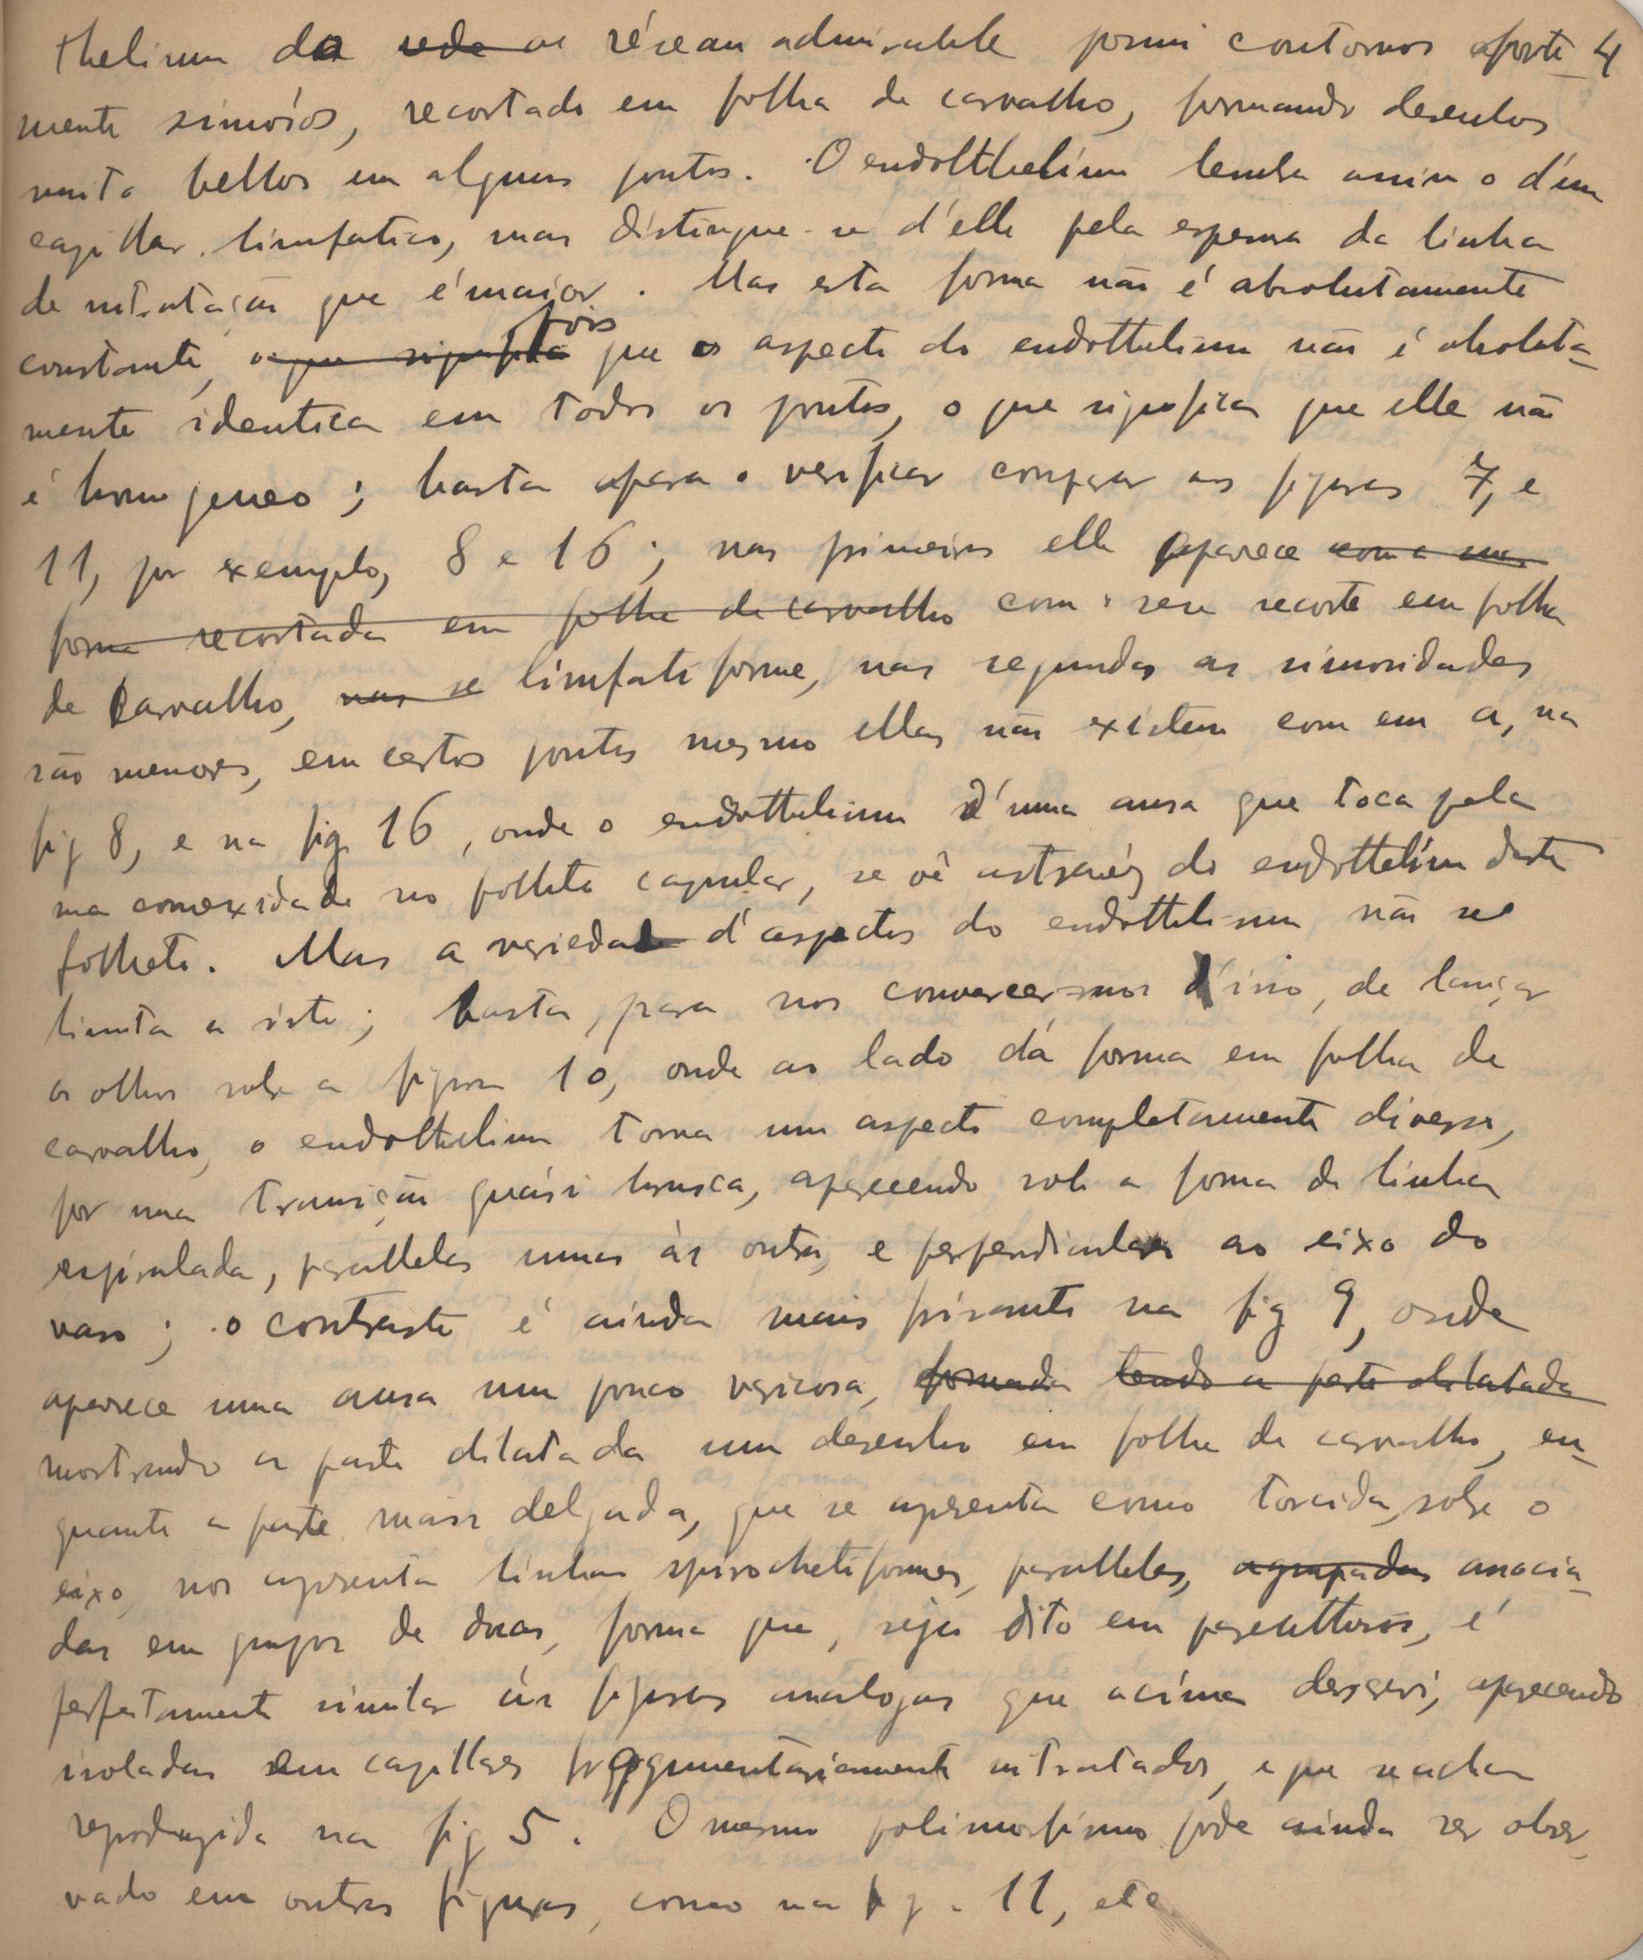 thelium do rede ao réseau admirable possui contornos aperta- 4
mente sinuosos, recortado em folha de carvalho, formando desenhos
muito bellos em alguns pontos. O endotthelium lembra assim o d'um
capillar limfatico, mas distingue-se d'elle pela espessura da linha
de nitratação que é maior. Mas esta forma não é absolutamente
constante, o que significa pois que o aspecto do endotthelium não é absoluta-
mente identico em todos os pontos, o que significa que elle não
é homogeneo; basta apara o verificar comparar as figuras 7, e
11, por exemplo, 8 e 16; nas primeiras elle apparece com a sua
forma recortada em folha de carvalho com o seu recorte em folha
de Carvalho, nas se limfatiforme, nas segundas as sinuosidades
são menores, em certos pontos mesmo ellas não existem com em a, na
fig 8, e na fig. 16, onde o endotthelium d'uma ansa que toca pela
sua convexidade no folheto capsular, se vê atravéz do endotthelium deste
folheto. Mas a variedade d'aspectos do endotthelium não se
limita a isto; basta, para nos convencermos d'isso, de lançar
os olhos sobre a figura 10, onde ao lado da forma em folha de
carvalho, o endotthelium toma um aspecto completamente diverso,
por uma transição quási brusca, aparecendo sob a forma de linha
espiralada, parallelas umas ás outras, e perpendiculares ao eixo do
vaso; o contraste é ainda mais frisante na fig 9, onde
aparece uma ansa um pouco varicosa, formada tendo a parte dilatada
mostrando a parte dilatada um desenho em folha de carvalho, en-
quanto a parte mais delgada, que se apresenta como torcida sobre o
eixo, nos apresenta linhas spirochetiformes, parallelas, agrupadas associa-
das em grupos de duas, forma que, seja dito em parenthesis, é
perfeitamente similar ás figuras analogas que acima descrevi, aparecendo
isoladas em capillares fragmentariamente nitratados, e que se acha
reproduzida na fig 5. O mesmo polimorfismo póde ainda ser obser-
vado em outras figuras, como na fig. 11, etc.